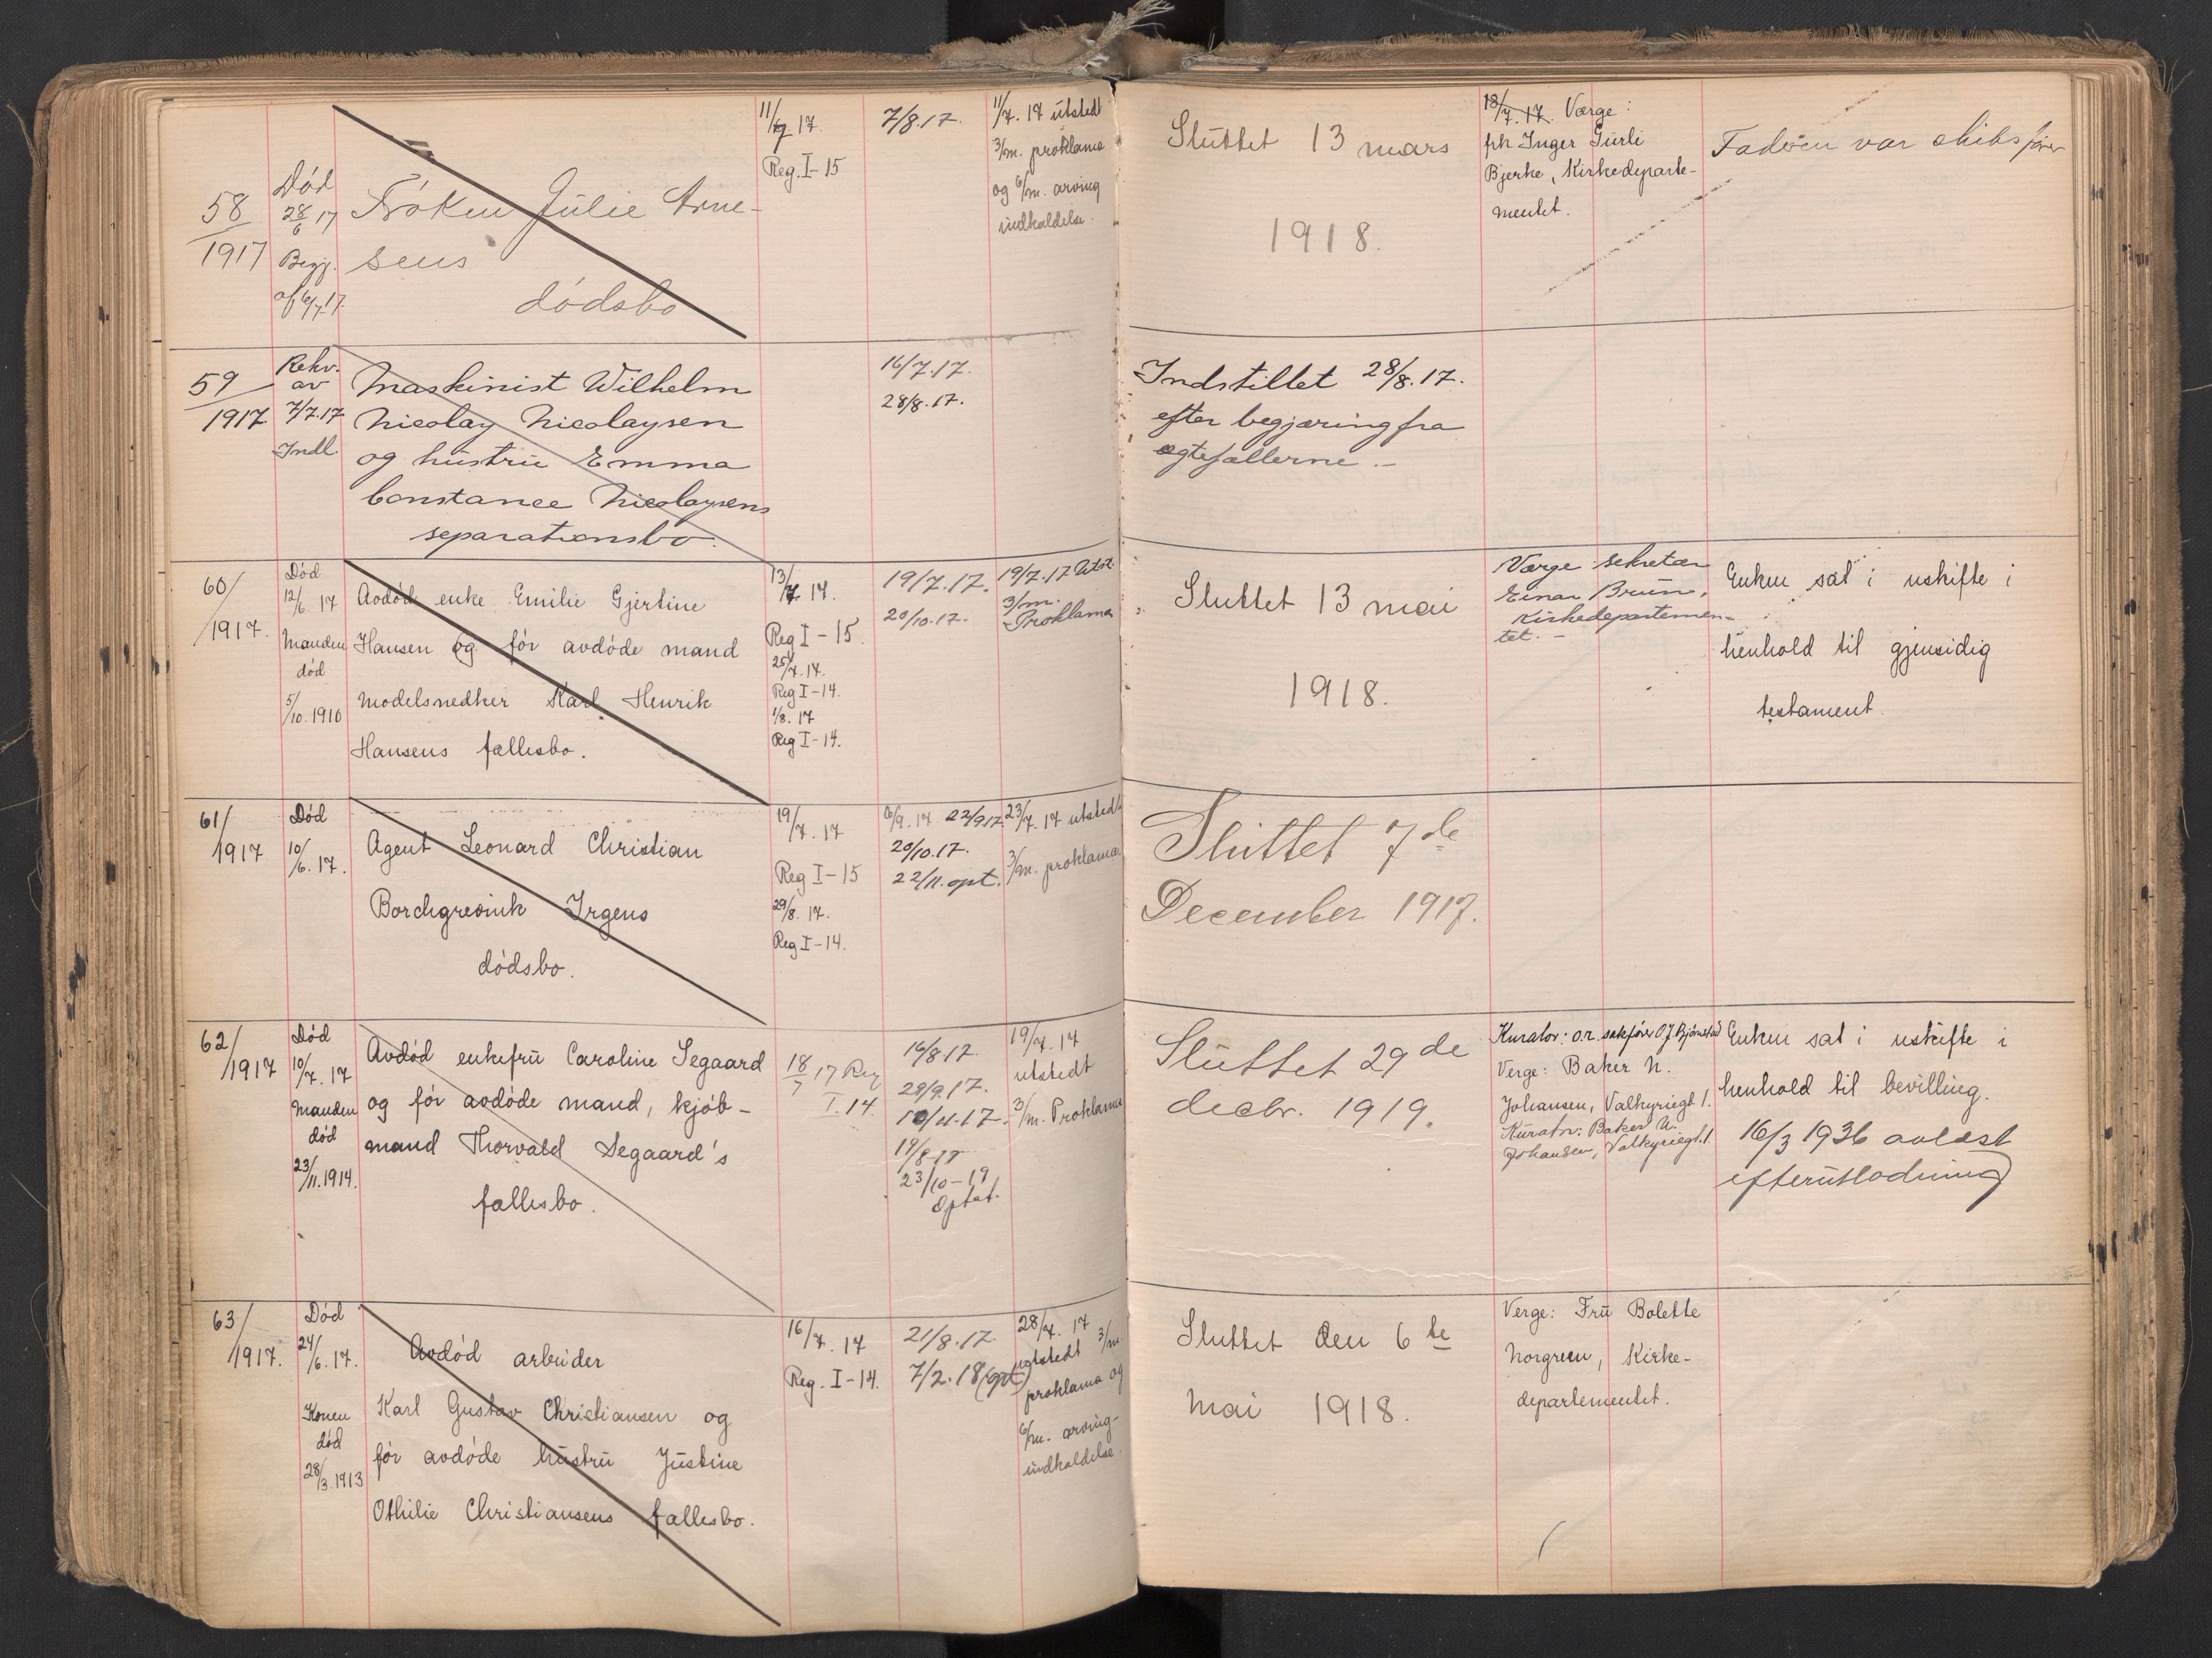 58/1917
Død
28/6 17
Begj.
af 6/7 17.
Frøken Julie Arne-
sens
dødsbo
11/7 17.
Reg. I-15
7/8.17.
11/7. 17 utstedt
3/m. proklama
og 6/m. arving
indkaldelse.
Sluttet 13 mars
1918.
18/7.17. Værge:
frk Inger Gurli
Bjerke, Kirkedeparte-
mentet.
Faderen var skibsfører
59/1917.
Rekv.
av
7/7.17
Indl.
Maskinist Wilhelm
Nicolay Nicolaysen
og hustru Emma
Constance Nicolaysens
separationsbo.
16/7.17.
28/8.17.
Indstillet 28/8.17.
efter begjæring fra
ægtefællerne.-
60/1917.
Død
12/6 17
Manden
død
5/10.1910
Avdød enke Emilie Gjertine
Hansen og før avdøde mand
modelsnedker Karl Henrik
Hansens fællesbo.
13/7 17.
Reg I-15.
25/7.17.
Reg I-14.
1/8.17
Reg I-14.
19/7.17.
20/10.17.
19/7.17 Utst.
3/m.
Proklama
Sluttet 13 mai
1918.
Værge sekretær
Einar Bruun,
Kirkedepartemen-
tet.-
Enken sat i uskifte i
henhold til gjensidig
testament.
61/1917
Død
10/6.17.
Agent Leonard Christian
Borchgrevink Irgens
dødsbo.
19/7.17
Reg I-15
29/8.17.
Reg I-14.
6/9.17 22/9 17
20/10.17.
22/11. opt.
23/7.17 utstedt
3/m. proklama.
Sluttet 7de
December 1917.
62/1917
Død
10/7.17
Manden
død
23/11.1914.
Avdød enkefru Caroline Segaard
og før avdøde mand, kjøb-
mand Thorvald Segaard's
fællesbo.
18/7 17 Reg
I.14.
16/8 17.
29/9.17.
10/11.17.
19/8-19
23/10-19
Optat.
19/7.17
utstedt
3/m. Proklama
Sluttet 29de
decbr. 1919.
Kurator: o.r. sakfører O J Bjørnstad
Verge: Baker N.
Johansen, Valkyriegt 1.
Kurator: Baker N.
Johansen, Valkyriegt. 1.
Enken sat i uskifte i
henhold til bevilling.
16/3 1936 avlæst
efterutlodning
63/1917.
Død
24/6.17.
Konen
død
28/3.1913
Avdød arbeider
Karl Gustav Christiansen og
før avdøde hustru Justine
Othilie Christiansens fællesbo.
16/7.17
Reg. I-14.
21/8.17.
7/2.18 (opt)
28/7.17
utstedt 3/m.
proklama og
6/m. arving-
indkaldelse.
Sluttet den 6te
mai 1918.
Verge: Fru Bolette
Norgreen, Kirke-
departementet.